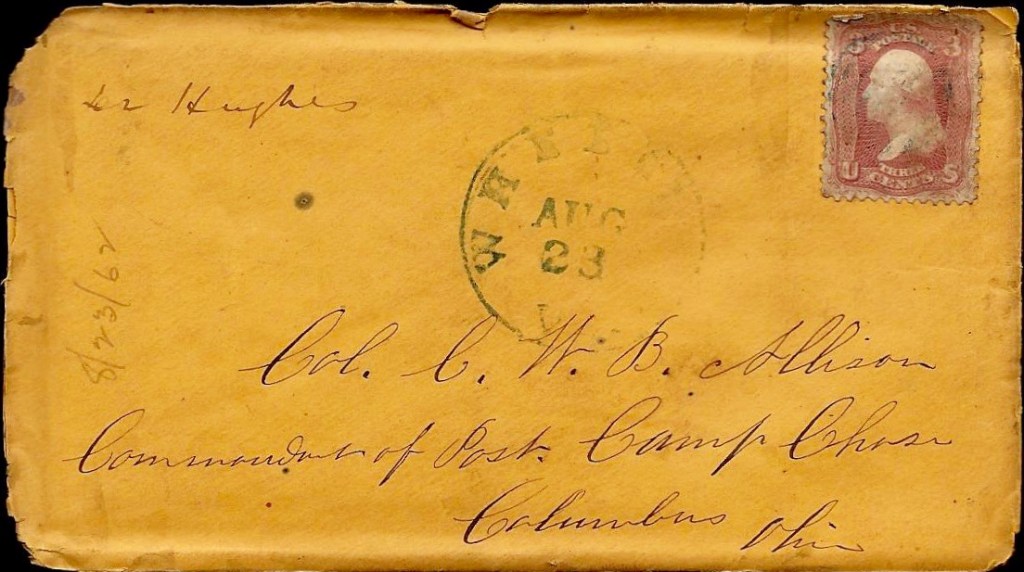 Dr Hughes
WHEE
AUG
23
8/23/62
3 POSTAGE 3
U S
THREE
CENTS
Col. C. W. B. Allison
Commandant of Post Camp Chase
Columbus Ohio